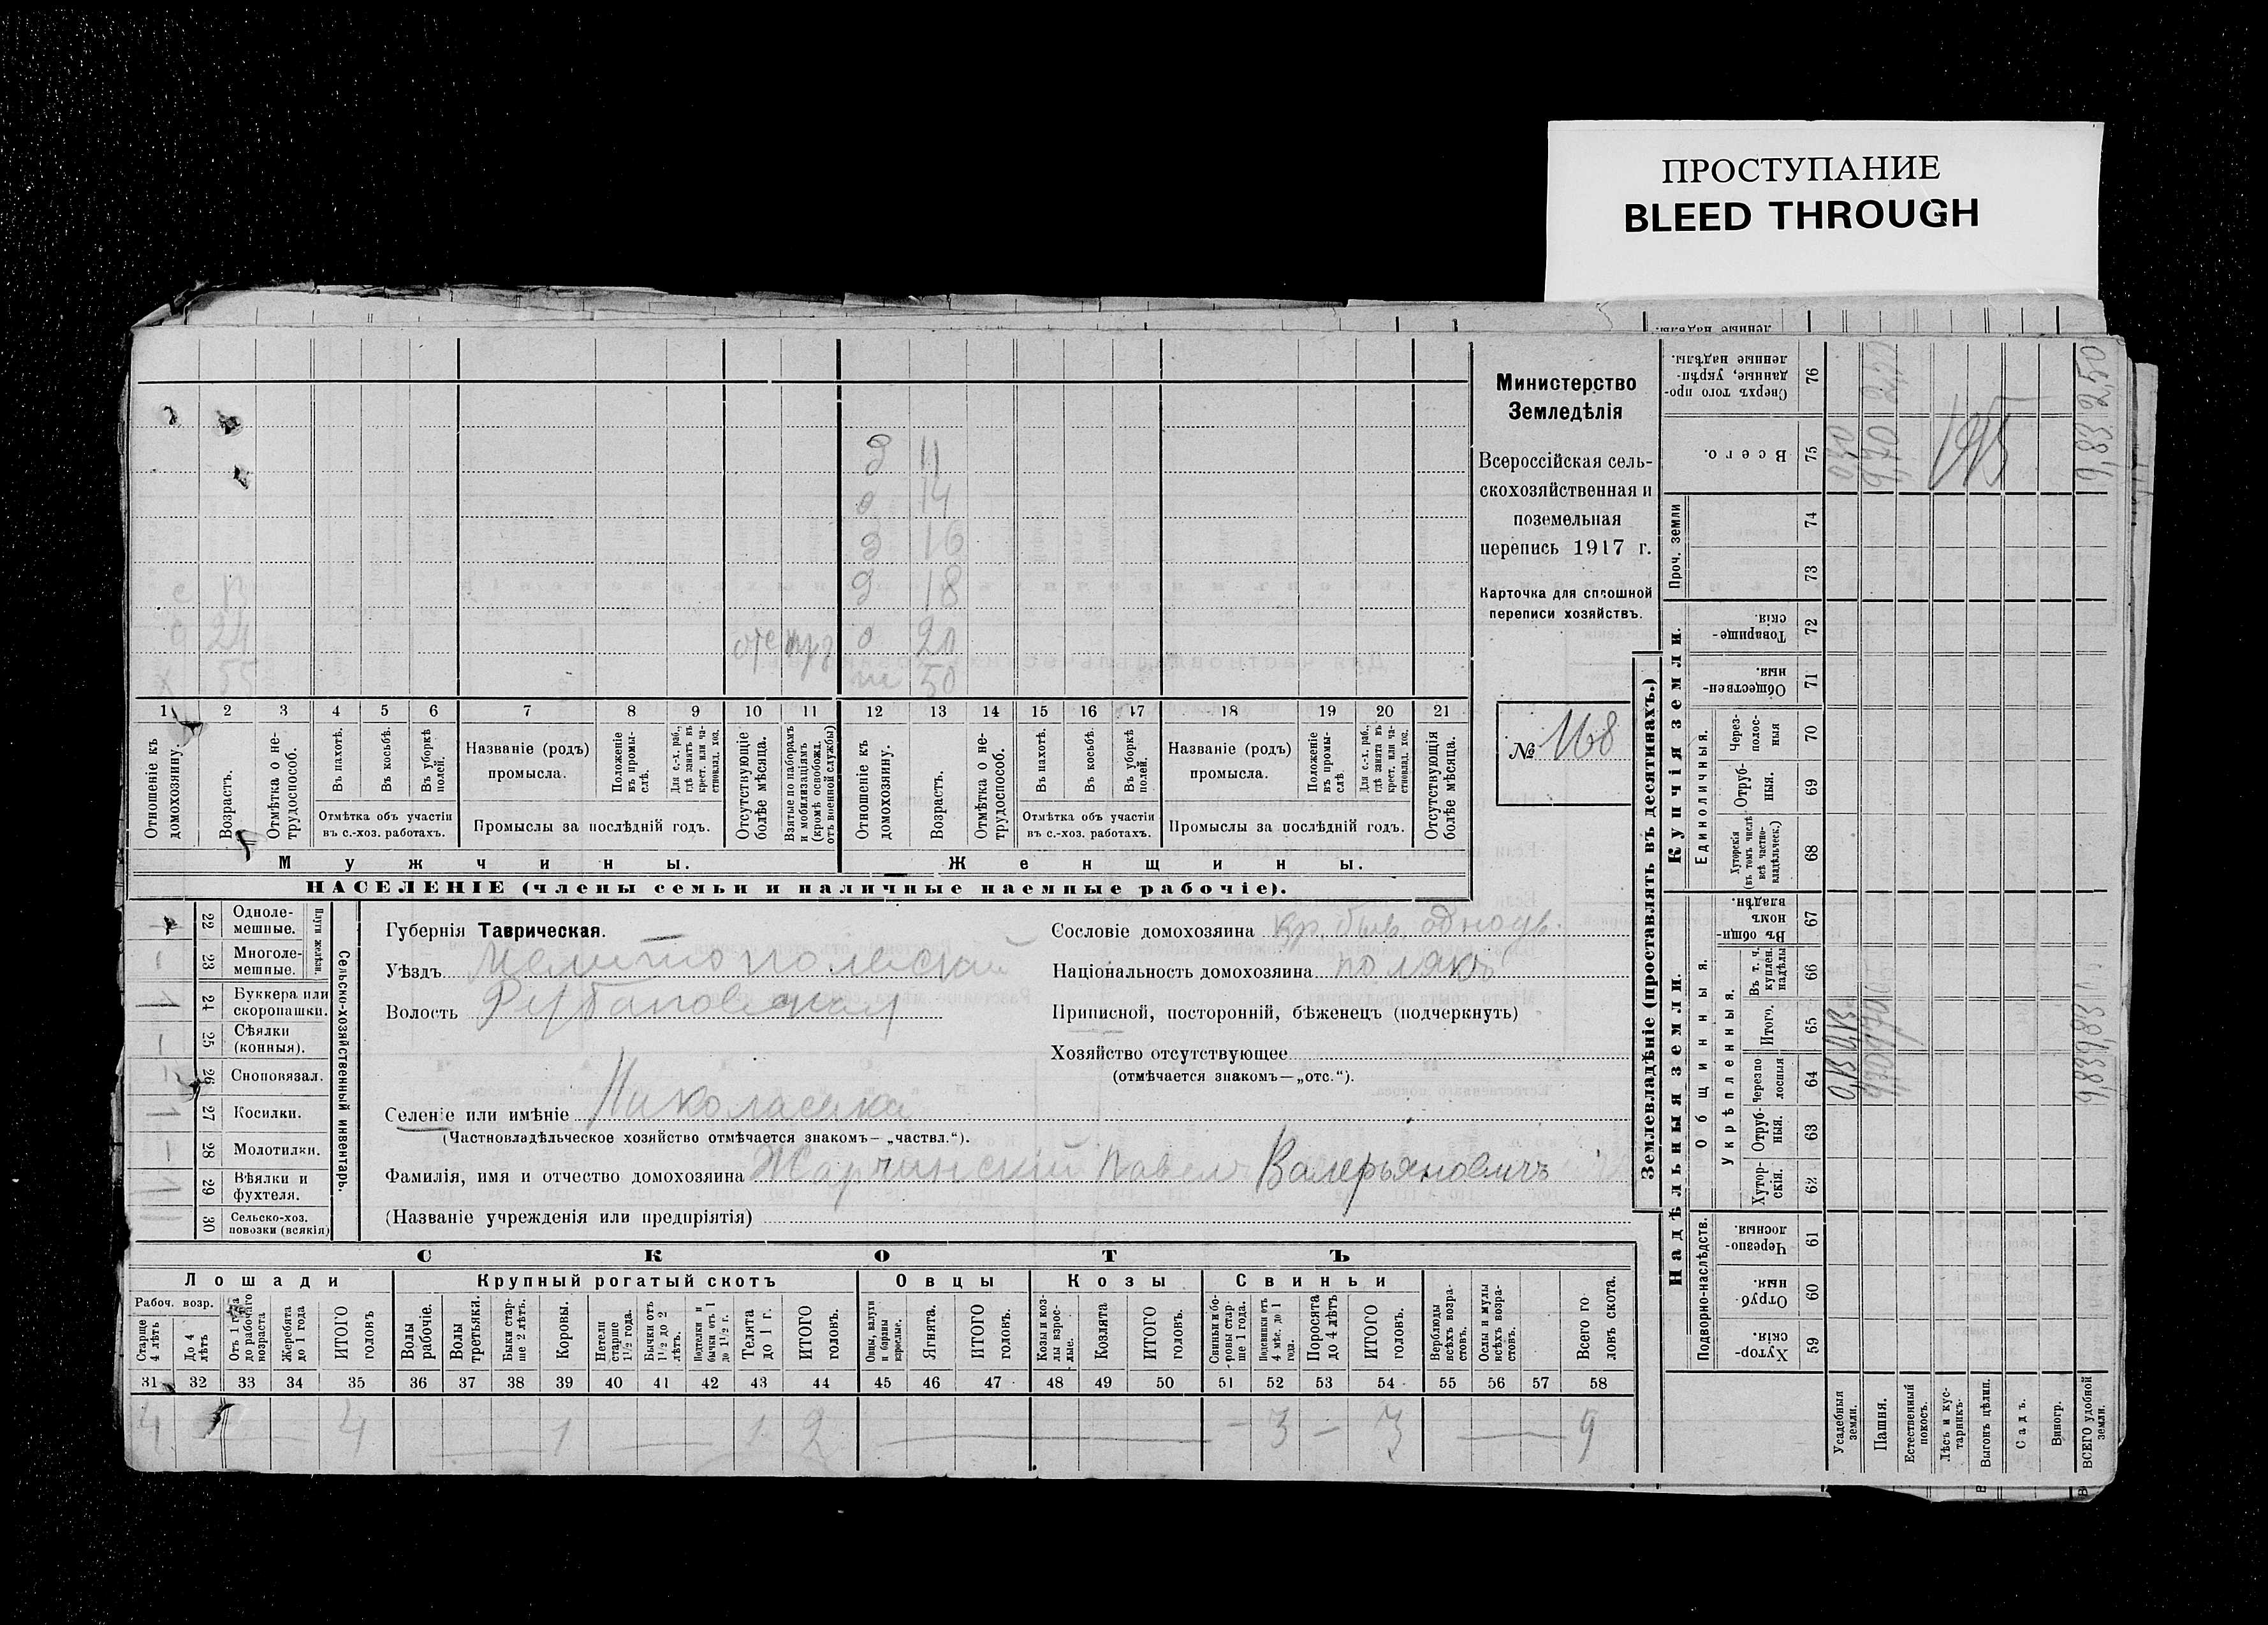 ПРОСТУПАНИЕ
BLEED THROUGH
Министерство
Земледѣлія
Всероссійская сель-
скохозяйственная и
поземельная
перепись 1917 г.
Карточка для сплошной
переписи хозяйствъ.
№ 168
д 11
д 14
д 16
с 13 д 18
с 24 отс д 20
х 55 ж 50
1 2 3 4 5 6 7 8 9 10 11 12 13 14 15 16 17 18 19 20 21
Отношеніе къ домохозяину.
Возрастъ.
Отмѣтка о не-трудоспособ.
Въ пахотѣ.
Въ косьбѣ.
Въ уборкѣ полей.
Отмѣтка объ участіи
въ с.-хоз. работахъ.
Названіе (родъ)
промысла.
Положеніе въ промы-слѣ.
Для с.-х. раб., гдѣ занятъ въ крест. или ча-стновлад. хоз.
Промыслы за послѣдній годъ.
Отсутствующіе болѣе мѣсяца.
Взятые по наборамъ и мобилизаціямъ (кромѣ освобожд. отъ военной службы)
Отношеніе къ домохозяину.
Возрастъ.
Отмѣтка о не-трудоспособ.
Въ пахотѣ.
Въ косьбѣ.
Въ уборкѣ полей.
Отмѣтка объ участіи
въ с.-хоз. работахъ.
Названіе (родъ)
промысла.
Положеніе въ промы-слѣ.
Для с.-х. раб., гдѣ занята въ крест. или ча-стновлад. хоз.
Промыслы за послѣдній годъ.
Отсутствующія болѣе мѣсяца.
Мужчины. Женщины.
НАСЕЛЕНІЕ (члены семьи и наличные наемные рабочіе).
Сельско-хозяйственный инвентарь.
Плуги желѣзн.
22 Одноле-мешные.
23 Многоле-мешные.
24 Буккера или скоропашки.
25 Сѣялки (конныя).
26 Сноповязал.
27 Косилки.
28 Молотилки.
29 Вѣялки и фухтеля.
30 Сельско-хоз. повозки (всякія)
Губернія Таврическая.
Уѣздъ Мелитопольскій
Волость
Сословіе домохозяина кр. быв. однодв.
Національность домохозяина полякъ
Приписной, посторонній, бѣженецъ (подчеркнуть)
Хозяйство отсутствующее
(отмѣчается знакомъ—„отс.“).
Селеніе или имѣніе Николаевка
(Частновладѣльческое хозяйство отмѣчается знакомъ—„частвл.“).
Фамилія, имя и отчество домохозяина Жарчинскій Павелъ Валерьяновичъ
(Названіе учрежденія или предпріятія)
СКОТЪ
Лошади Крупный рогатый скотъ Овцы Козы Свиньи
Рабоч. возр.
Старше 4 лѣтъ
До 4 лѣтъ
Отъ 1 года до рабочаго возраста
Жеребята до 1 года
ИТОГО головъ
Волы рабочіе.
Волы третьяки.
Быки стар-ше 2 лѣтъ.
Коровы.
Нетели старше 1½ года.
Бычки отъ 1½ до 2 лѣтъ.
Подтелки и бычки отъ 1 до 1½ г.
Телята до 1 г.
ИТОГО головъ.
Овцы, валухи и бараны взрослые.
Ягнята.
ИТОГО головъ.
Козы и коз-лы взрос-лые.
Козлята
ИТОГО головъ.
Свиньи и бо-ровы стар-ше 1 года.
Подсвинки отъ 4 мѣс. до 1 года.
Поросята до 4 лѣтъ
ИТОГО головъ.
Верблюды всѣхъ возра-стовъ.
Ослы и мулы всѣхъ возра-стовъ.
Всего го-ловъ скота.
31 32 33 34 35 36 37 38 39 40 41 42 43 44 45 46 47 48 49 50 51 52 53 54 55 56 57 58
4 — 4 — 1 — 1 2 — 3 — 3 — 9
Землевладѣніе (проставлять въ десятинахъ.)
Надѣльныя земли. Купчія земли. Проч. земли
Подворно-наслѣдств.
Общинныя.
Укрѣпленныя.
Единоличныя.
59 Хутор-скія.
60 Отруб-ныя.
61 Черезпо-лосныя.
62 Хутор-скія.
63 Отруб-ныя.
64 Черезпо-лосныя
65 Итого.
66 Въ т. ч. куплен. надѣлы
67 Въ общин-номъ владѣн.
68 Хуторскія (въ томъ числѣ всѣ частно-владѣльческ.)
69 Отруб-ныя.
70 Через-полос-ныя
71 Обществен-ныя.
72 Товарище-скія.
73
74
75 Всего.
76 Сверхъ того про-данные, укрѣп-ленные надѣлы.
Усадебныя земли.
Пашня.
Естественный покосъ.
Лѣсъ и кус-тарникъ.
Выгонъ цѣлин.
Садъ.
Виногр.
ВСЕГО удобной земли.
0,13 0,13
9,70 9,70 9,70
9,83 9,83 9,83 2,50